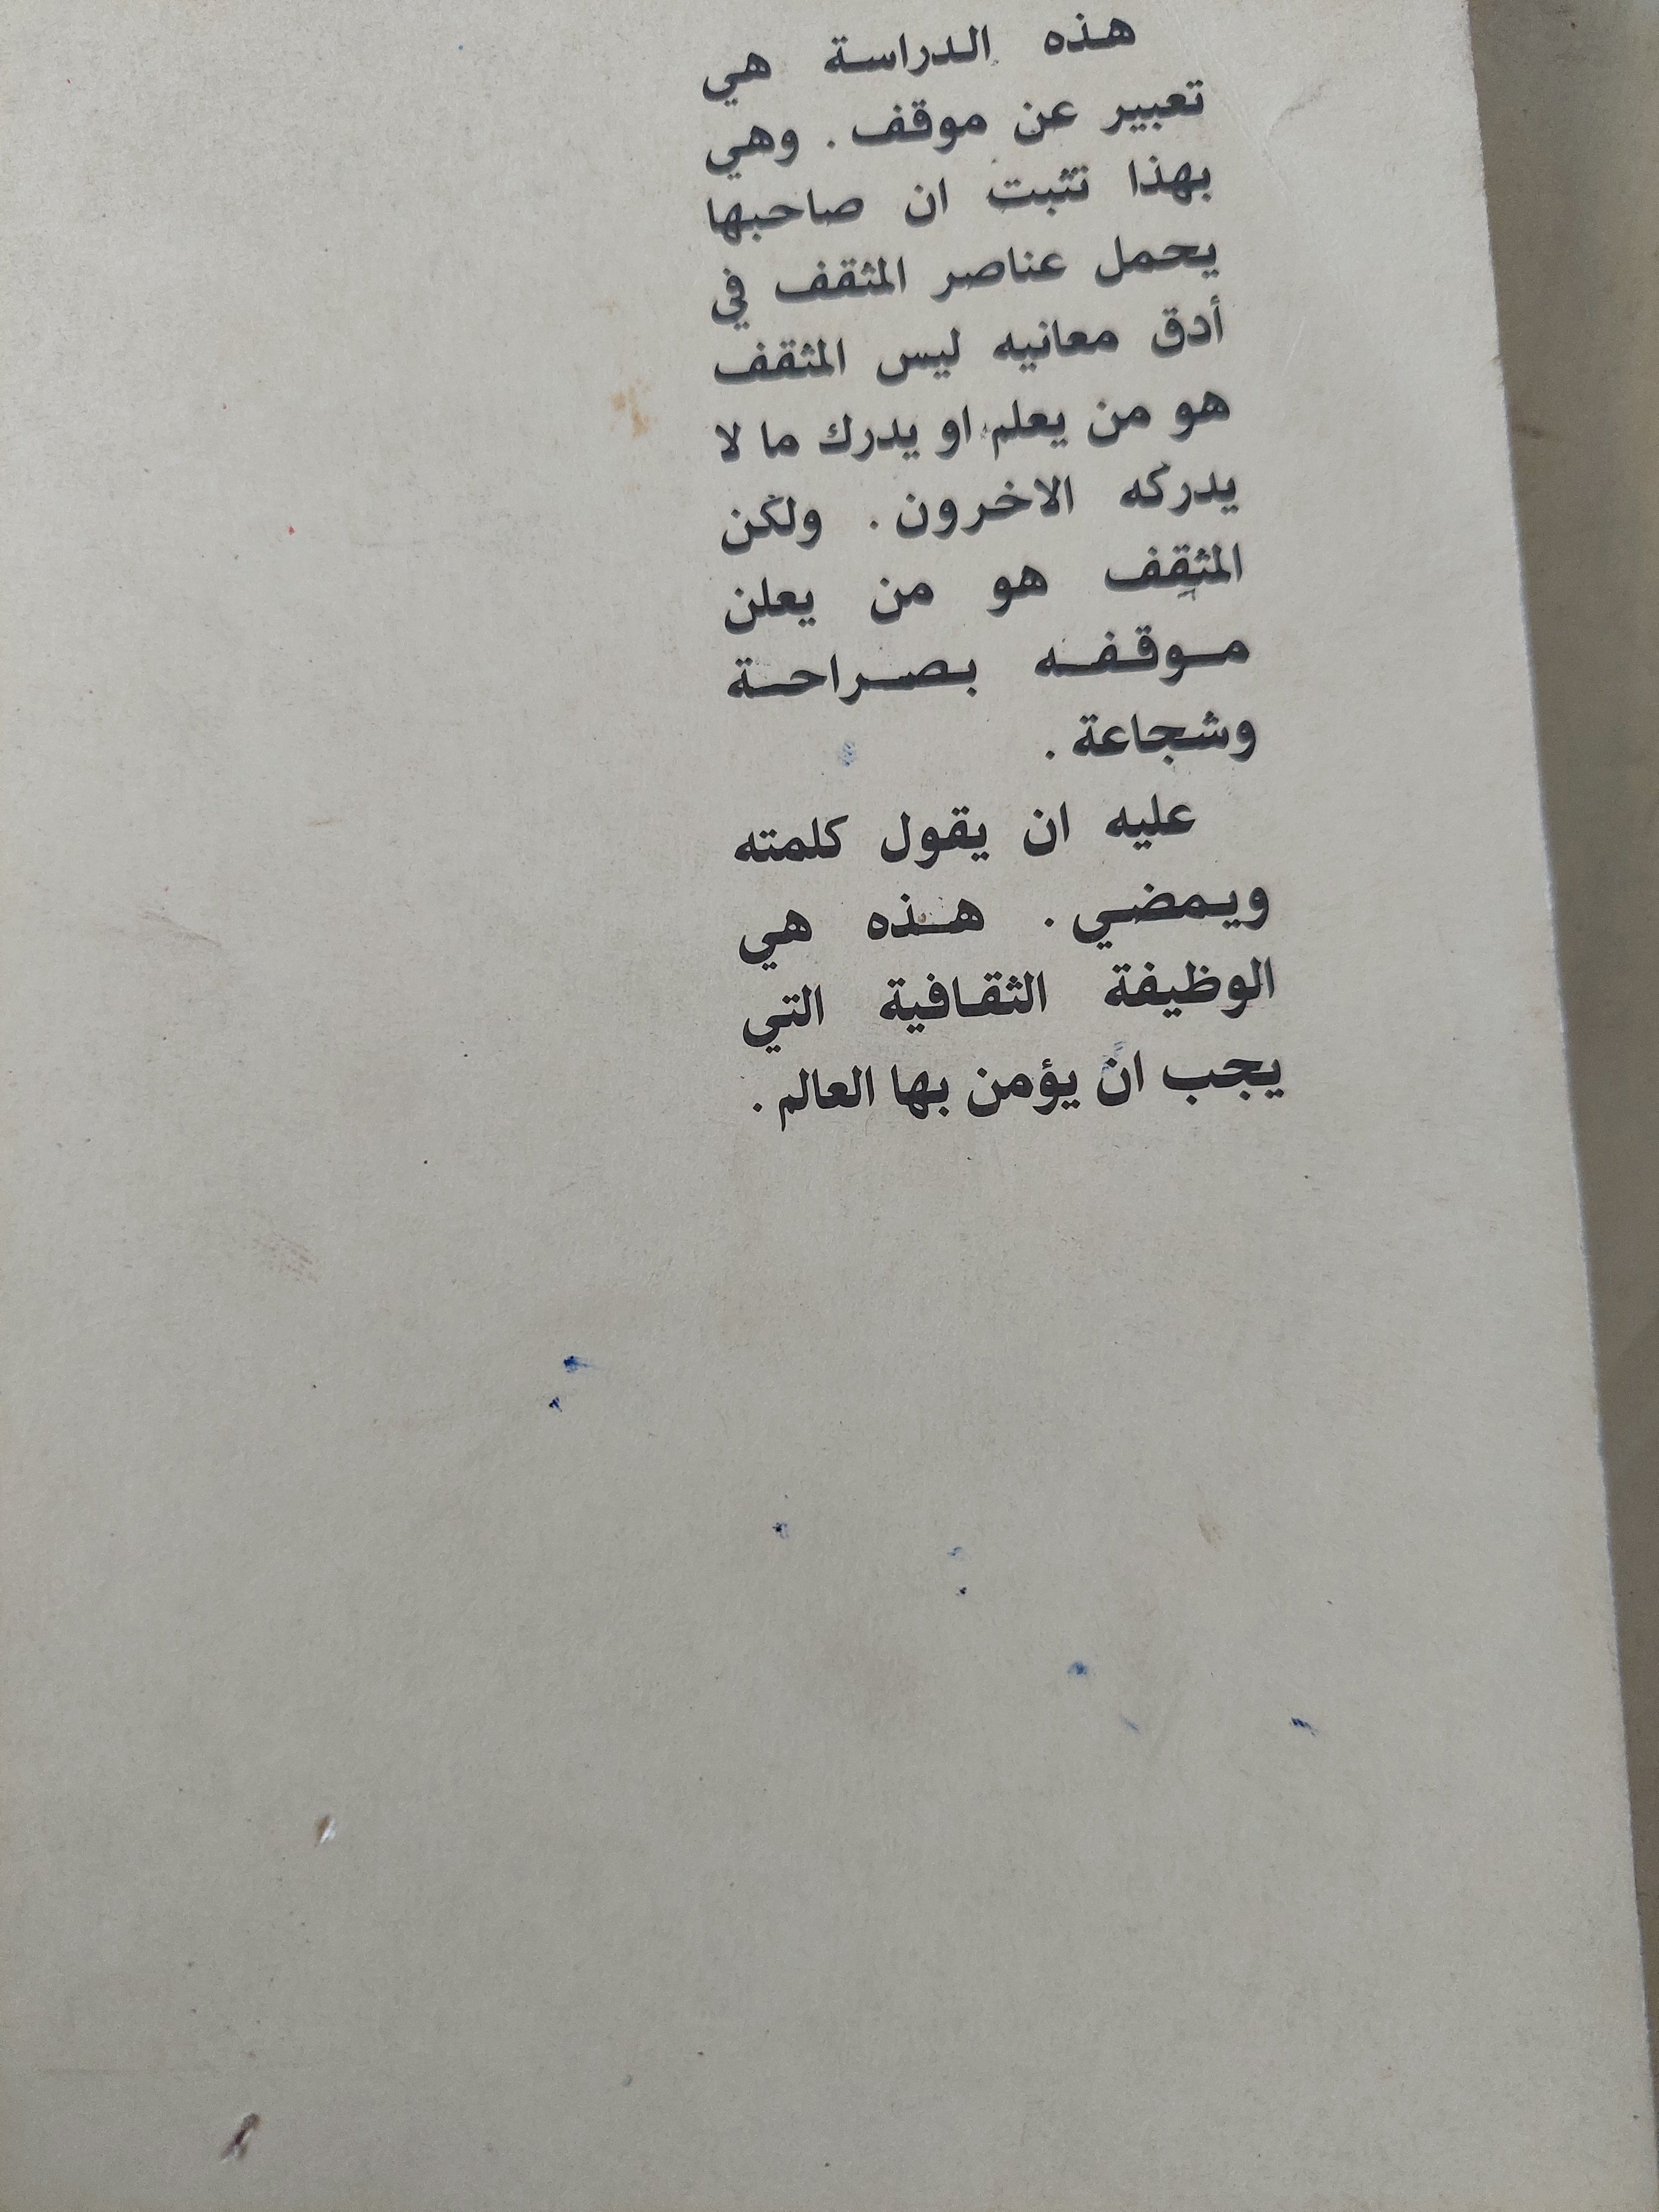 هذه الدراسة هي
تعبير عن موقف . وهي
بهذا تثبت ان صاحبها
يحمل عناصر المثقف في
أدق معانيه ليس المثقف
هو من يعلم او يدرك ما لا
يدركه الاخرون . ولكن
المثقف هو من يعلن
موقفه بصراحة
وشجاعة .
عليه ان يقول كلمته
ويمضي . هذه هي
الوظيفة الثقافية التي
يجب ان يؤمن بها العالم .